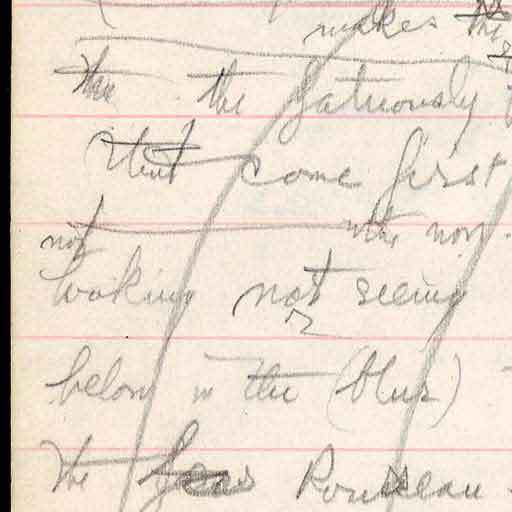 makes the
the the fatuously
that come first
not into non
looking not seeing
below in the (blue)
The Rousseau